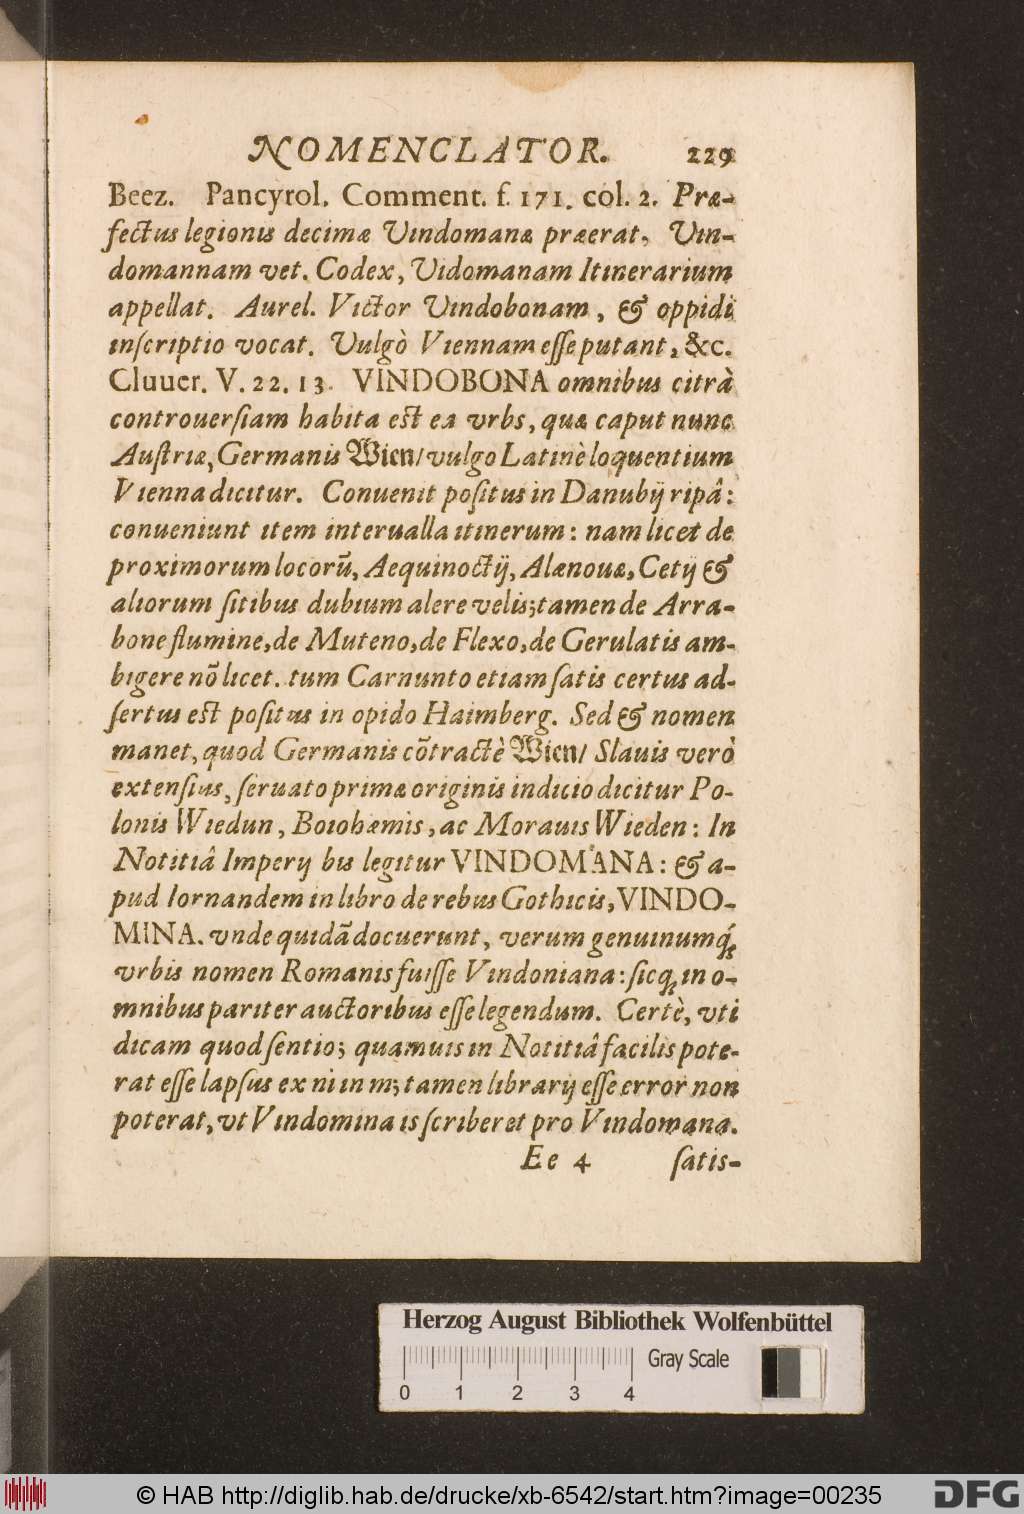 NOMENCLATOR. 229
Beez. Pancyrol. Comment. f. 171. col. 2. Præ-
fectus legionis decimæ Vindomanæ præerat. Vin-
domannam vet. Codex, Vidomanam Itinerarium
appellat. Aurel. Victor Vindobonam, & oppidi
inſcriptio vocat. Vulgò Viennam eſſe putant, &c.
Cluuer. V. 22. 13. VINDOBONA omnibus citrà
controuerſiam habita est ea vrbs, quæ caput nunc
Auſtriæ, Germanis Wien/ vulgo Latinè loquentium
Vienna dicitur. Conuenit poſitus in Danubij ripâ:
conueniunt item interualla itinerum: nam licet de
proximorum locorũ, Aequinoctij, Alænouæ, Cetij &
aliorum ſitibus dubium alere velis; tamen de Arra-
bone flumine, de Muteno, de Flexo, de Gerulatis am-
bigere nõ licet. tum Carnunto etiam ſatis certus ad-
ſertus est poſitus in opido Haimberg. Sed & nomen
manet, quod Germanis cõtractè Wien/ Slauis verò
extenſius, ſeruato primæ originis indicio dicitur Po-
lonis Wiedun, Boiohæmis, ac Morauis Wieden: In
Notitiâ Imperij bis legitur VINDOMANA: & a-
pud Iornandem in libro de rebus Gothicis, VINDO-
MINA. vnde quidã docuerunt, verum genuinumq́;
vrbis nomen Romanis fuiſſe Vindoniana: ſicq; in o-
mnibus pariter auctoribus eſſe legendum. Certè, vti
dicam quod ſentio; quamuis in Notitiâ facilis pote-
rat eſſe lapſus ex ni in m; tamen librarij eſſe error non
poterat, vt Vindomina is ſcriberet pro Vindomana.
Ee 4 ſatis-
Herzog August Bibliothek Wolfenbüttel
Gray Scale
0 1 2 3 4
© HAB http://diglib.hab.de/drucke/xb-6542/start.htm?image=00235
DFG